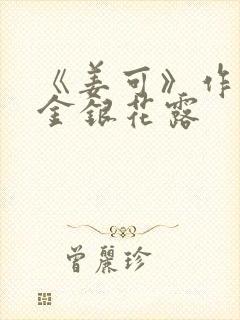 《姜可》作
金银花露
曾麗珍